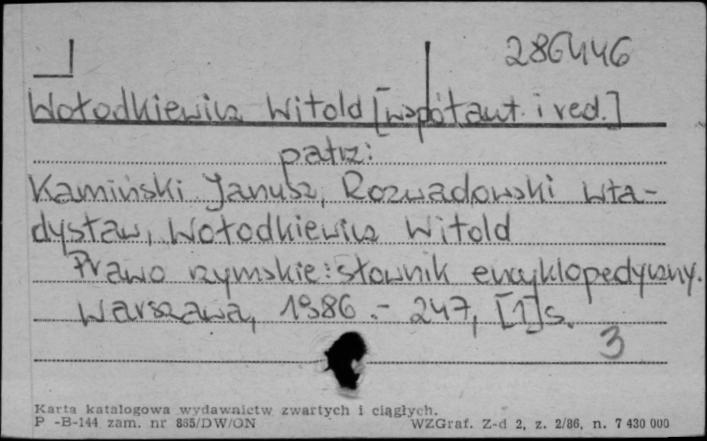 286446
Wołodkiewicz Witold [współaut. i red.]
patrz:
Kamiński Janusz, Rozwadowski Wła-
dysław, Wołodkiewicz Witold
Prawo rzymskie: słownik encyklopedyczny.
Warszawa, 1986. - 247, [1] s.
3
Karta katalogowa wydawnictw zwartych i ciągłych.
P -B-144 zam. nr 885/DW/ON WZGraf. Z-d 2, z. 2/86, n. 7 430 000